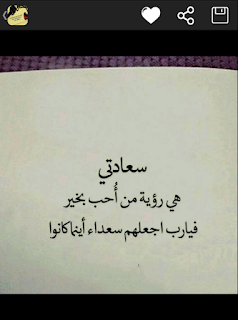 سعادتي
هي رؤية من أُحب بخير
فيارب اجعلهم سعداء أينما كانوا